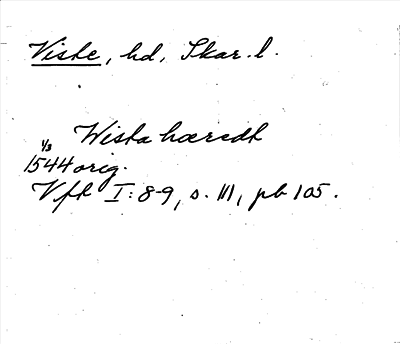 Viste, hd, Skar. l.
Wista hæredt
1/3
1544 orig.
Vfr I: 8-9, s. 111, pb 105.